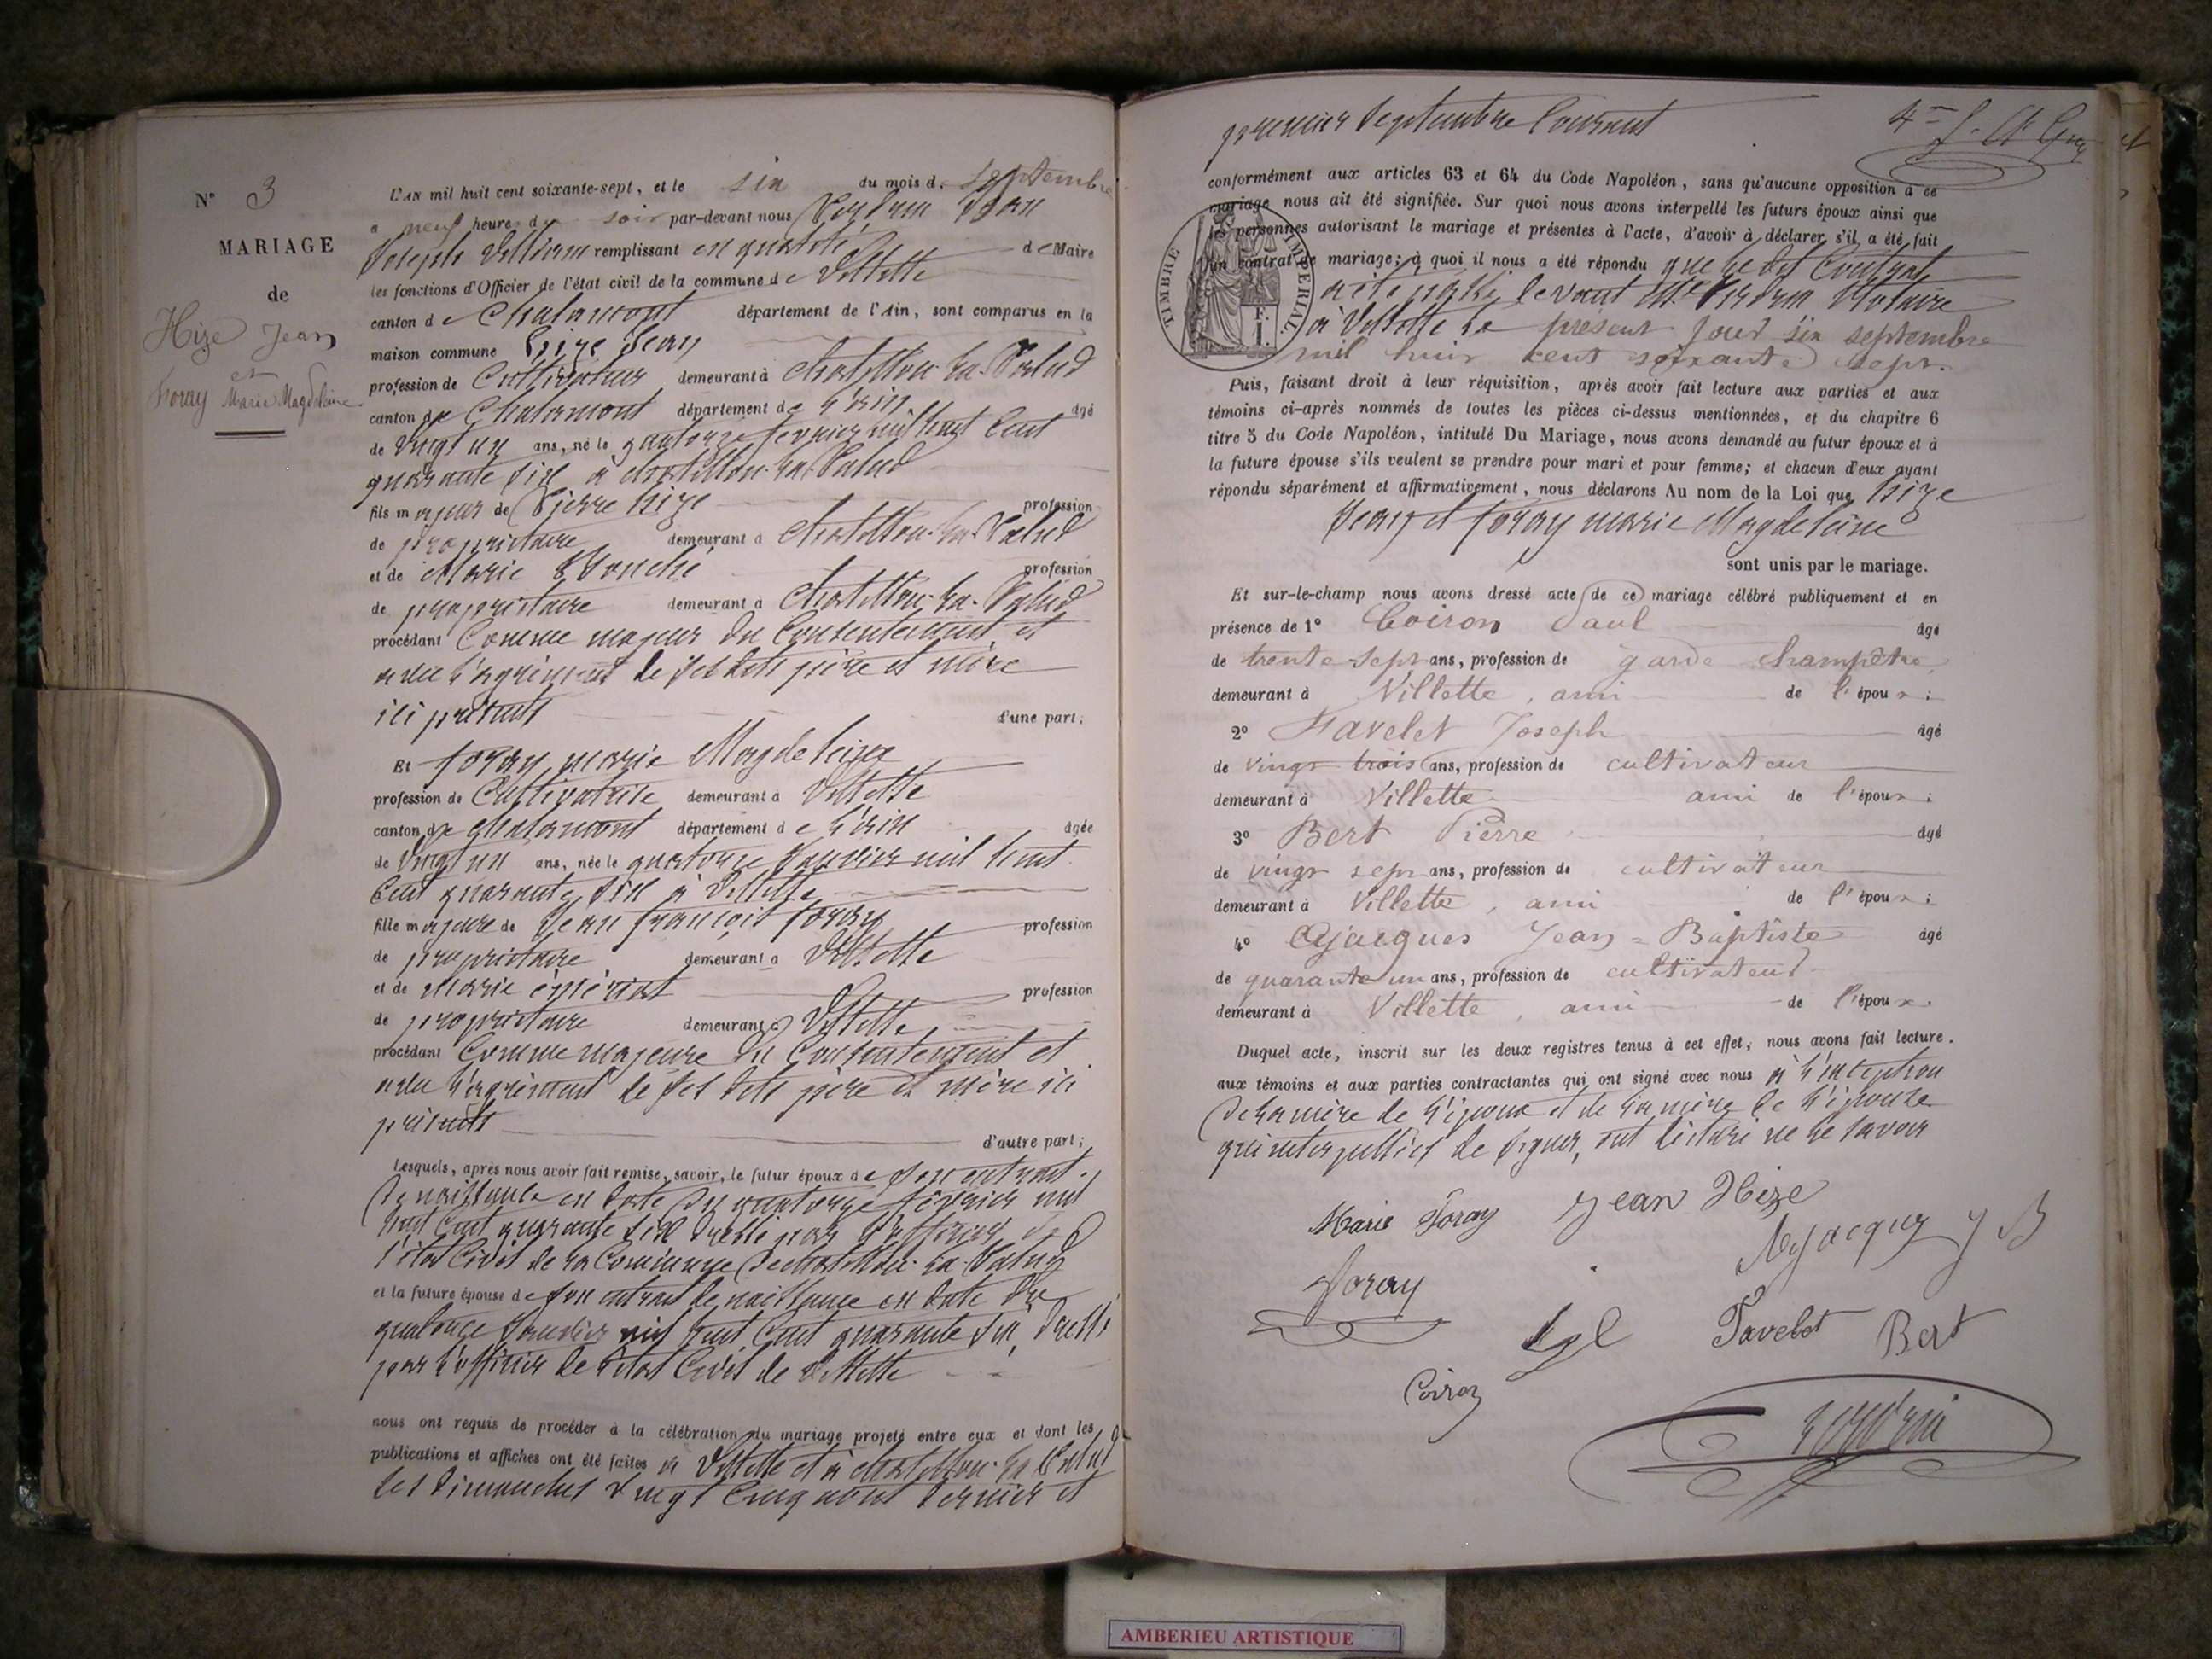 N° 3
MARIAGE
de
Hize Jean
et
Foray Marie Magdeleine
L'AN mil huit cent soixante-sept, et le six du mois de Septembre
a neuf heure du soir par-devant nous Jean
Joseph remplissant en qualité de Maire
les fonctions d'Officier de l'état civil de la commune de Villette
canton de Chalamont département de l'Ain, sont comparus en la
maison commune Hize Jean
profession de Cultivateur demeurant à Chatillon-la-Palud
canton de Chalamont département de l'Ain âgé
de Vingt un ans, né le quatorze février mil huit Cent
quarante six à Chatillon-la-Palud
fils majeur de Pierre Hize profession
de propriétaire demeurant à Chatillon-la-Palud
et de Marie profession
de propriétaire demeurant à Chatillon-la-Palud
procédant Comme majeur du Consentement et
avec l'agrément de ses dits père et mère
ici présents d'une part;
Et foray marie Magdeleine
profession de Cultivatrice demeurant à Villette
canton de Chalamont département de l'ain âgée
de Vingt un ans, née le quatorze Janvier mil huit
Cent quarante six à Villette
fille majeure de Jean françois foray profession
de propriétaire demeurant à Villette
et de Marie profession
de propriétaire demeurant à Villette
procédant Comme majeure du Consentement et
avec l'agrément de ses dits père et mère ici
présents d'autre part;
Lesquels, après nous avoir fait remise, savoir, le futur époux de son extrait
de naissance en date du quatorze février mil
huit Cent quarante six délivré par l'officier de
l'état Civil de la Commune de Chatillon-la-Palud
et la future épouse de son extrait de naissance en date du
quatorze Janvier mil huit Cent quarante six, délivré
par l'officier de l'état Civil de Villette
nous ont requis de procéder à la célébration du mariage projeté entre eux et dont les
publications et affiches ont été faites à Villette et à Chatillon-la-Palud
les dimanches vingt Cinq aout dernier et
premier Septembre Courant
conformément aux articles 63 et 64 du Code Napoléon, sans qu'aucune opposition à ce
mariage nous ait été signifiée. Sur quoi nous avons interpellé les futurs époux ainsi que
les personnes autorisant le mariage et présentes à l'acte, d'avoir à déclarer s'il a été fait
un contrat de mariage; à quoi il nous a été répondu que le dit Contrat
a été passé devant Me Notaire
à Villette le présent jour six septembre
mil huit cent soixante sept.
TIMBRE IMPERIAL.
F.
1.
Puis, faisant droit à leur réquisition, après avoir fait lecture aux parties et aux
témoins ci-après nommés de toutes les pièces ci-dessus mentionnées, et du chapitre 6
titre 5 du Code Napoléon, intitulé Du Mariage, nous avons demandé au futur époux et à
la future épouse s'ils veulent se prendre pour mari et pour femme; et chacun d'eux ayant
répondu séparément et affirmativement, nous déclarons Au nom de la Loi que hize
Jean et foray marie Magdeleine
sont unis par le mariage.
Et sur-le-champ nous avons dressé acte de ce mariage célébré publiquement et en
présence de 1° Coiron Paul âgé
de trente sept ans, profession de garde champêtre
demeurant à Villette, ami de l'époux;
2° Favelet Joseph âgé
de vingt trois ans, profession de cultivateur
demeurant à Villette ami de l'époux;
3° Bert Pierre âgé
de vingt sept ans, profession de cultivateur
demeurant à Villette, ami de l'époux;
4° Ajacques Jean=Baptiste âgé
de quarante un ans, profession de cultivateur
demeurant à Villette, ami de l'époux.
Duquel acte, inscrit sur les deux registres tenus à cet effet, nous avons fait lecture.
aux témoins et aux parties contractantes qui ont signé avec nous à l'exception
de la mère de l'époux et de la mère de l'épouse
qui interpellées de signer, ont déclaré ne le savoir
Marie Foray Jean Hize
Ajacques J B
Foray
Favelet Bert
Coiron
AMBERIEU ARTISTIQUE